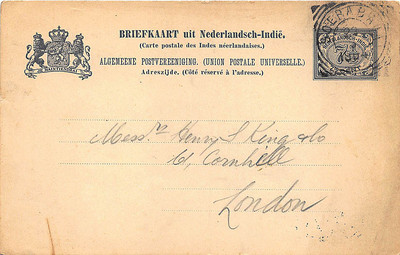 BRIEFKAART uit Nederlandsch-Indië.
(Carte postale des Indes néerlandaises.)
ALGEMEENE POSTVEREENIGING. (UNION POSTALE UNIVERSELLE.)
Adreszijde. (Côté réservé à l'adresse.)
SOERABAJA
7½
Messrs Henry S King & Co
Cornhill
London